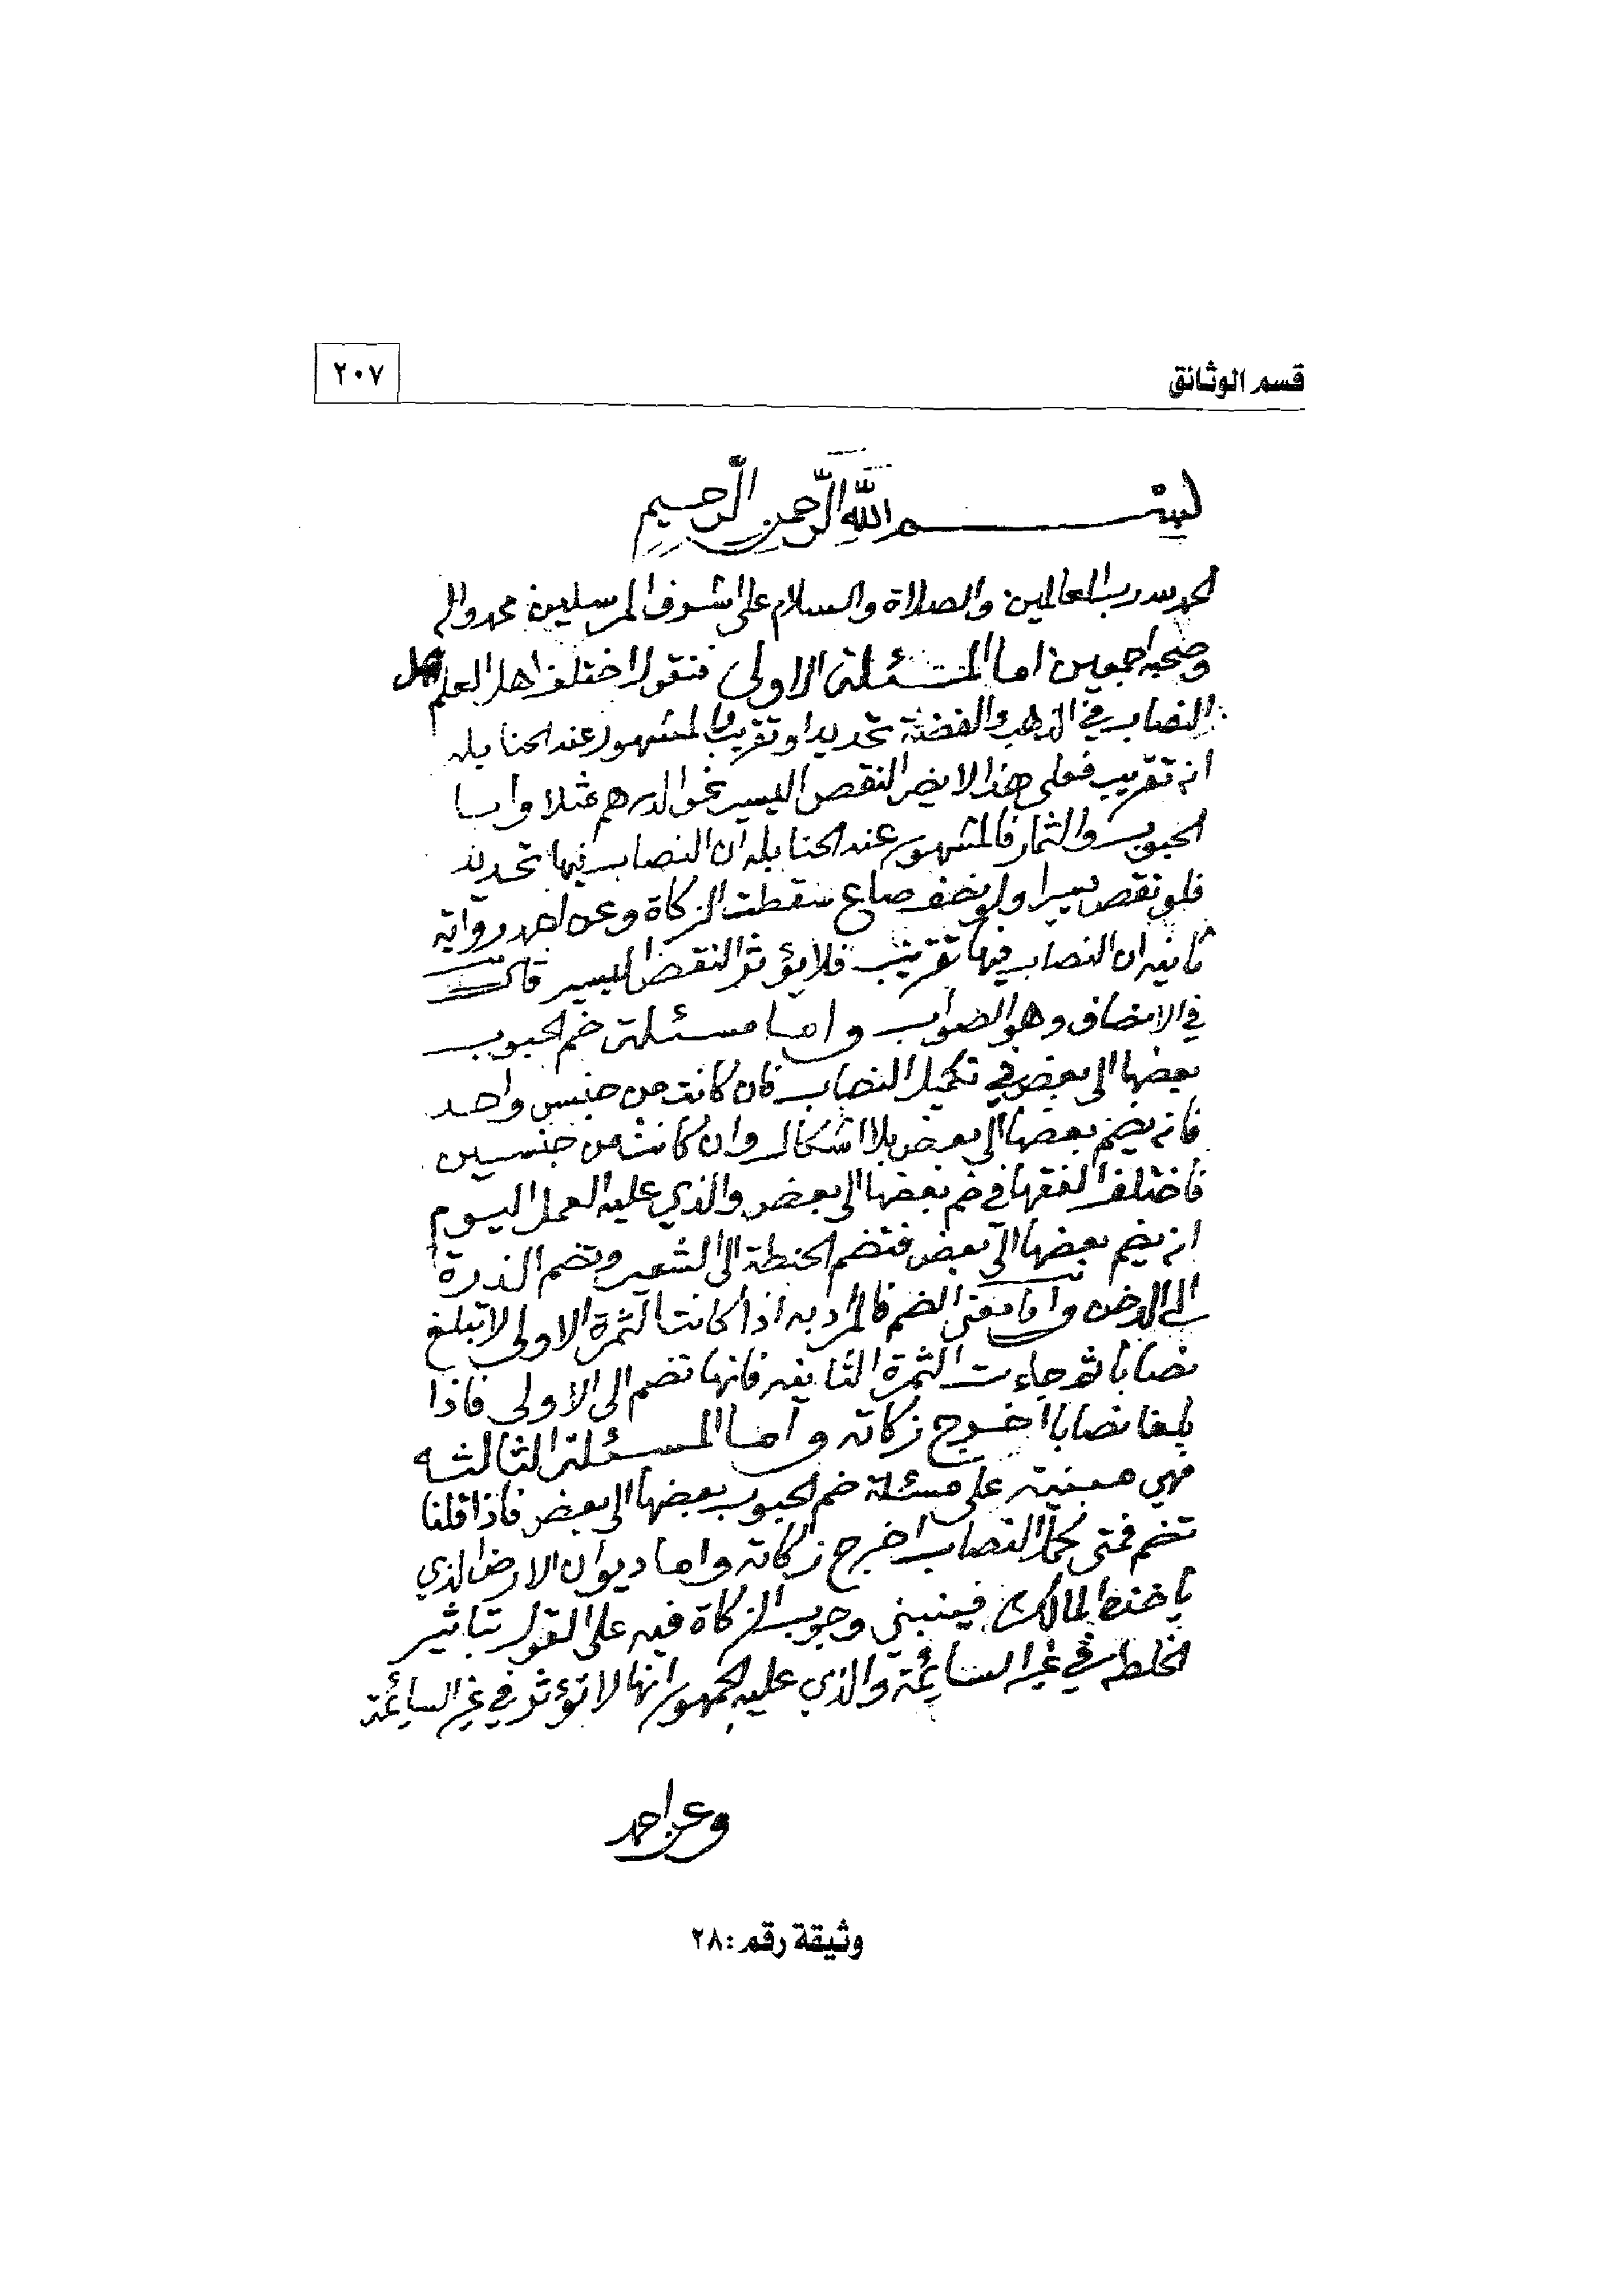 قسم الوثائق
٢٠٧
بسم الله الرحمن الرحيم
الحمد لله رب العالمين والصلاة والسلام على اشرف المرسلين محمد واله
وصحبه اجمعين اما المسئلة الاولى فنقول اختلف اهل العلم هل
النصاب في الذهب والفضة تحديد او تقريب والمشهور عند الحنابله
انه تقريب فعلى هذا لا يضر النقص اليسير نحو الدرهم مثلا واما
الحبوب والثمار فالمشهور عند الحنابله ان النصاب فيها تحديد
فلو نقص يسيرا ولو نصف صاع سقطت الزكاة وعن احمد رواية
ثانيه ان النصاب فيها تقريب فلا يؤثر النقص اليسير قال
في الانصاف وهو الصواب واما مسئلة ضم الحبوب
بعضها الى بعض في تكميل النصاب فان كانت من جنس واحد
فانه يضم بعضها الى بعض بلا اشكال وان كانت من جنسين
فاختلف الفقها في ضم بعضها الى بعض والذي عليه العمل اليوم
انه يضم بعضها الى بعض فتضم الحنطة الى الشعير وتضم الذرة
الى الدخن واما معنى الضم فالمراد به اذا كانت الثمرة الاولى لا تبلغ
نصابا ثم جاءت الثمرة الثانيه فانها تضم الى الاولى فاذا
بلغا نصابا اخرج زكاته واما المسئلة الثالثه
فهي مبنية على مسئلة ضم الحبوب بعضها الى بعض فاذا قلنا
تضم فمتى كمل النصاب اخرج زكاته واما ديوان الارض الذي
ياخذه المالك فينبني وجوب الزكاة فيه على القول بتاثير
الخلطه في غير السائمة والذي عليه الجمهور انها لا تؤثر في غير السائمة
وعن احمد
وثيقة رقم: ٢٨